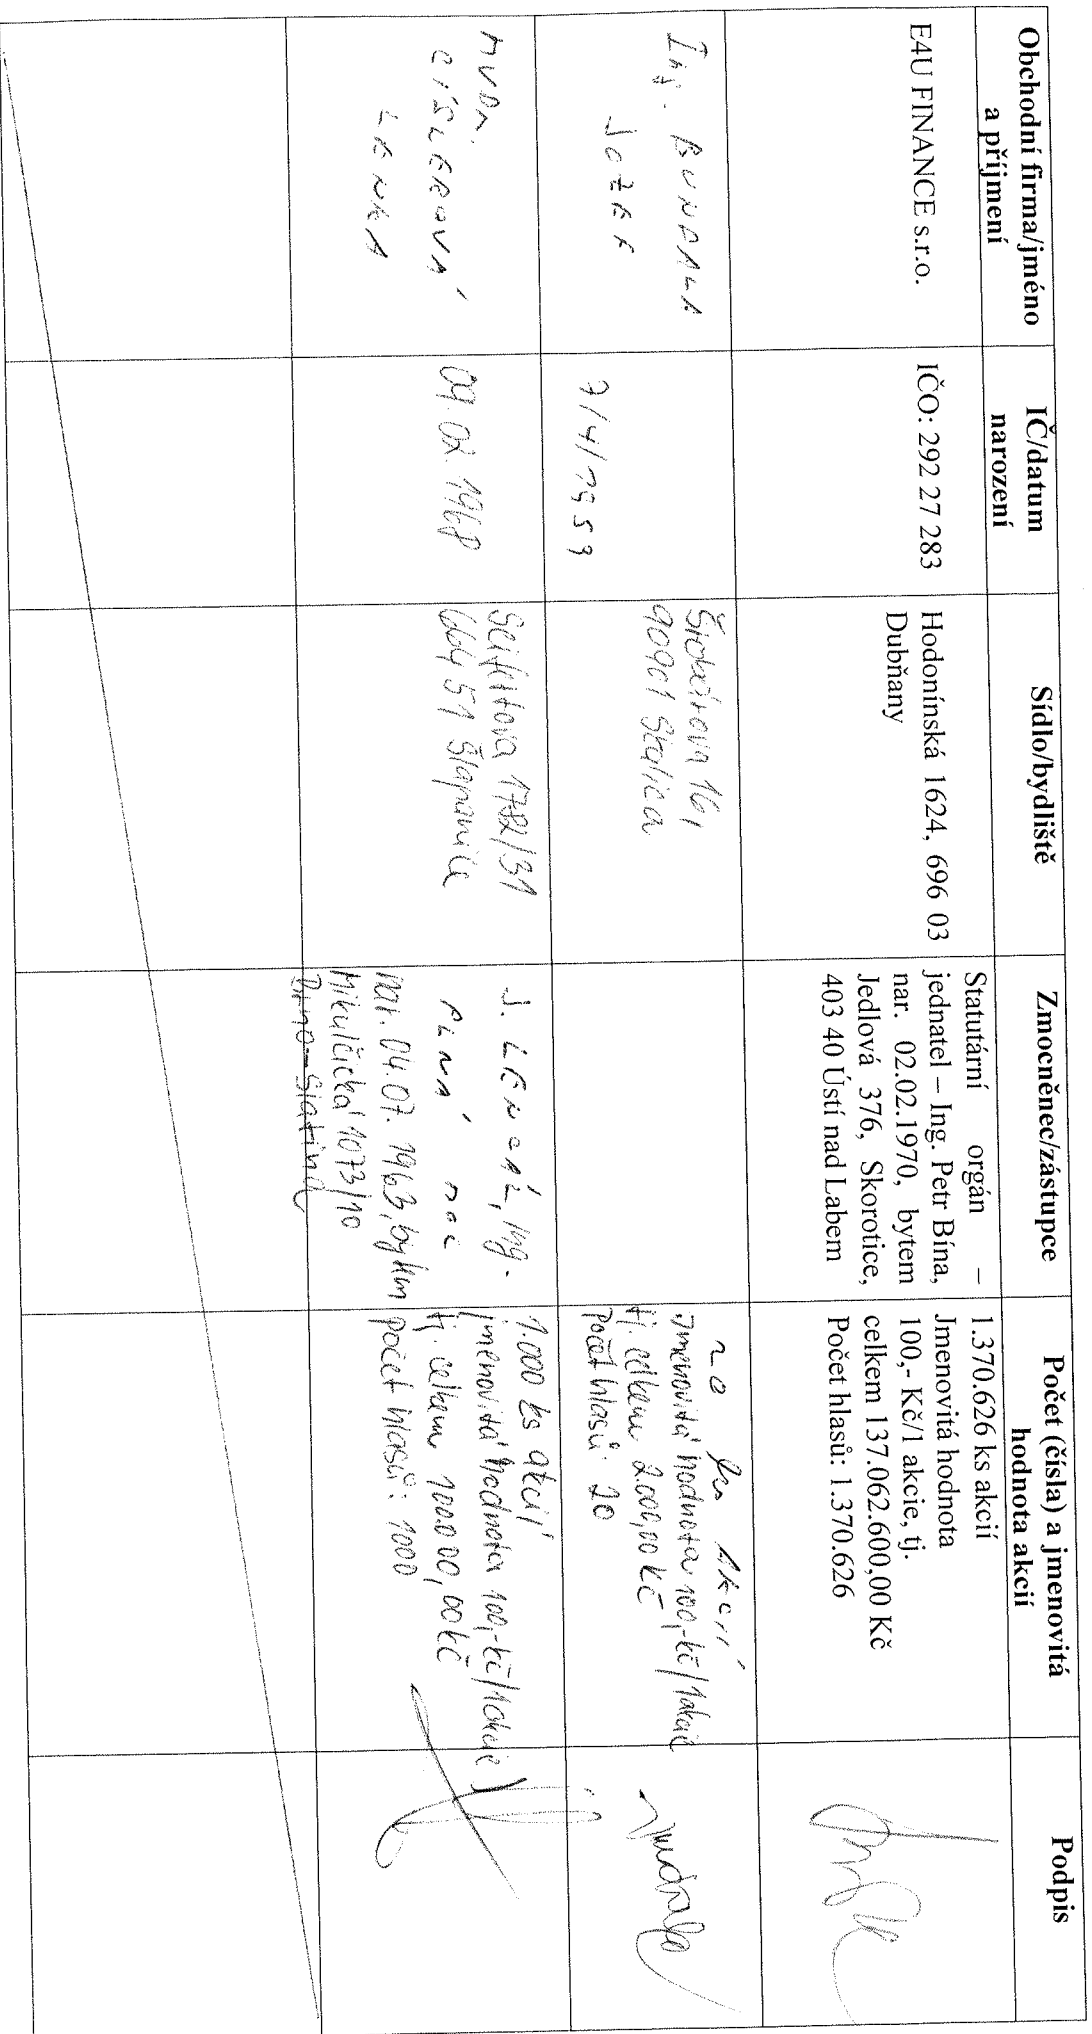 Obchodní firma/jméno
a příjmení
IČ/datum
narození
Sídlo/bydliště
Zmocněnec/zástupce
Počet (čísla) a jmenovitá
hodnota akcií
Podpis
E4U FINANCE s.r.o.
IČO: 292 27 283
Hodonínská 1624, 696 03
Dubňany
Statutární orgán –
jednatel – Ing. Petr Bína,
nar. 02.02.1970, bytem
Jedlová 376, Skorotice,
403 40 Ústí nad Labem
1.370.626 ks akcií
Jmenovitá hodnota
100,- Kč/1 akcie, tj.
celkem 137.062.600,00 Kč
Počet hlasů: 1.370.626
Ing. BUNDALA
JOZEF
7/4/1953
16,
90901 Skalica
20 ks AKCIÍ
Jmenovitá hodnota 100,-kč/1akcie
tj. celkem 2.000,00 kč
Počet hlasů: 20
MVDR.
CÍSLEROVÁ
LENKA
09.02.1968
Seifertova 1782/31
664 51 Šlapanice
J. , Ing.
PLNÁ MOC
nar. 04.07.1963, bytem
Mikulčická 1073/10
Brno-Slatina
1.000 ks akcií
jmenovitá hodnota 100,-kč/1akcie)
tj. celkem 100.000,00kč
počet hlasů: 1000